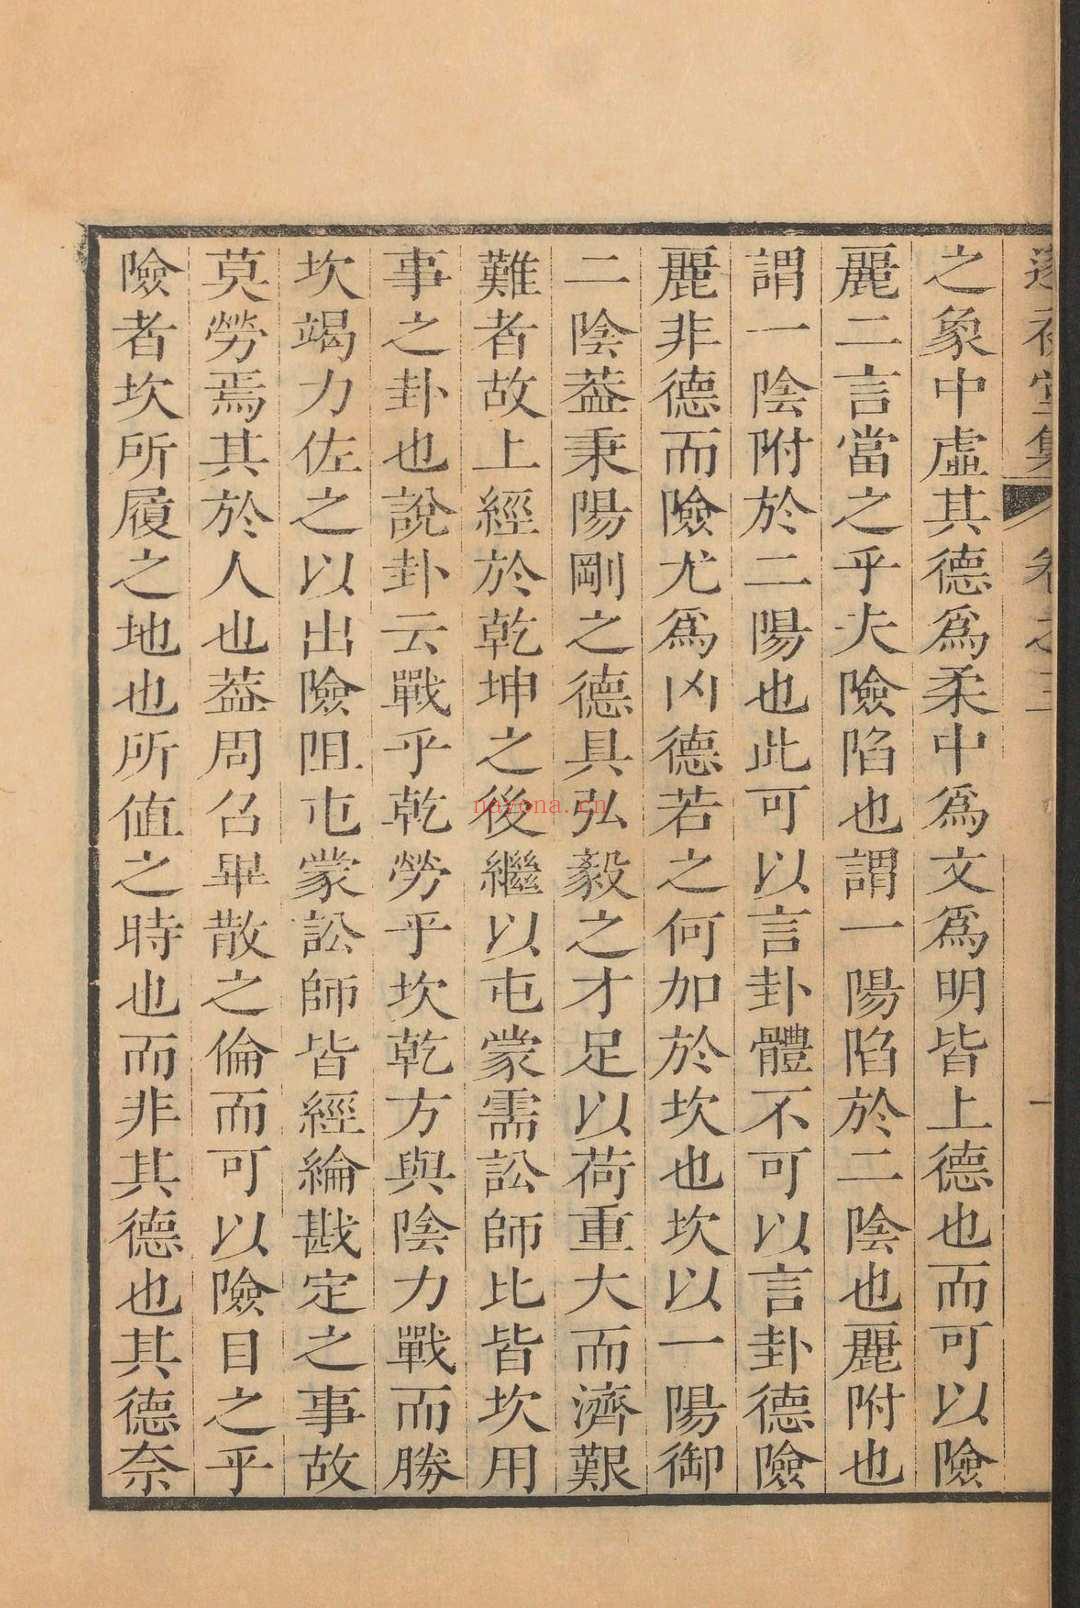 之象中虛其德為柔中為文為明皆上德也而可以險
麗二言當之乎夫險陷也謂一陽陷於二陰也麗附也
謂一陰附於二陽也此可以言卦體不可以言卦德險
麗非德而險尤為凶德若之何加於坎也坎以一陽御
二陰葢秉陽剛之德具弘毅之才足以荷重大而濟艱
難者故上經於乾坤之後繼以屯蒙需訟師比皆坎用
事之卦也說卦云戰乎乾勞乎坎乾方與陰力戰而勝
坎竭力佐之以出險阻屯蒙訟師皆經綸戡定之事故
莫勞焉其於人也葢周召畢散之倫而可以險目之乎
險者坎所履之地也所值之時也而非其德也其德奈
nayona.cn